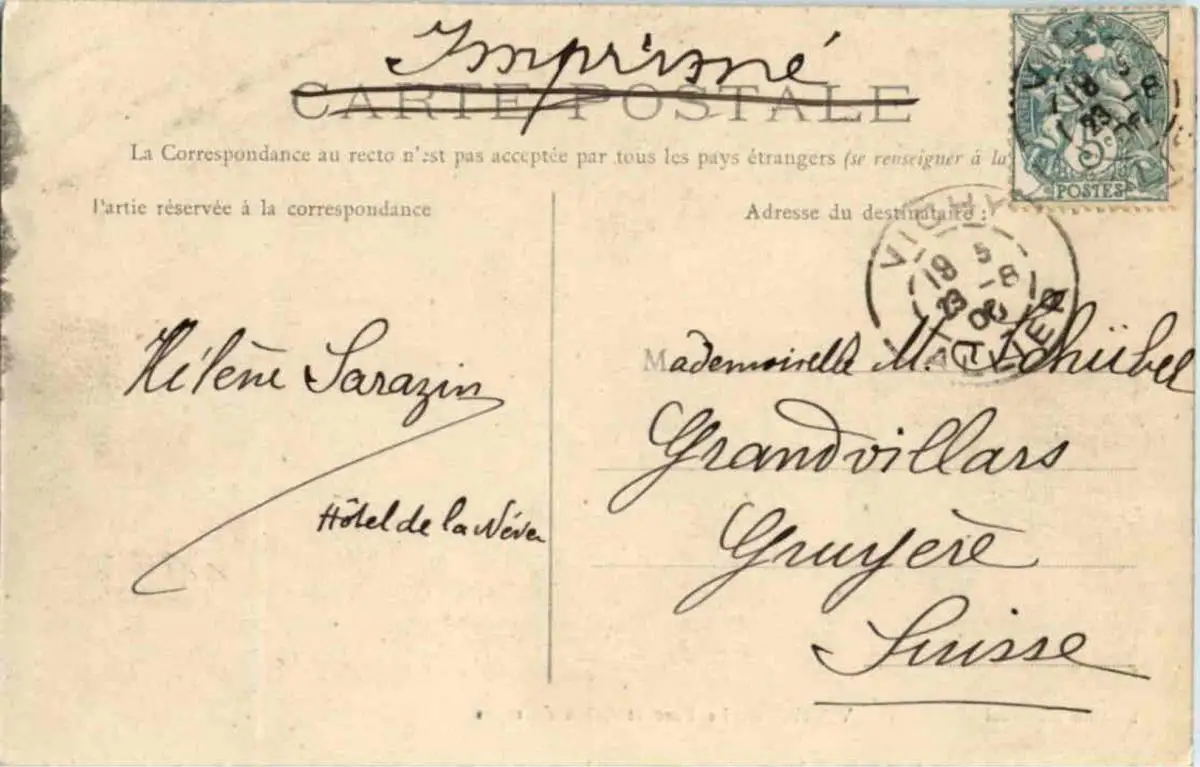 Imprimé
CARTE POSTALE
La Correspondance au recto n'est pas acceptée par tous les pays étrangers (se renseigner à la
Partie réservée à la correspondance
Adresse du destinataire :
POSTES
VICHY
19 5
23 -8
06
ALLIER
Hélène Sarazin
Hôtel de la
Mademoiselle M. Schübel
Grandvillars
Gruyère
Suisse